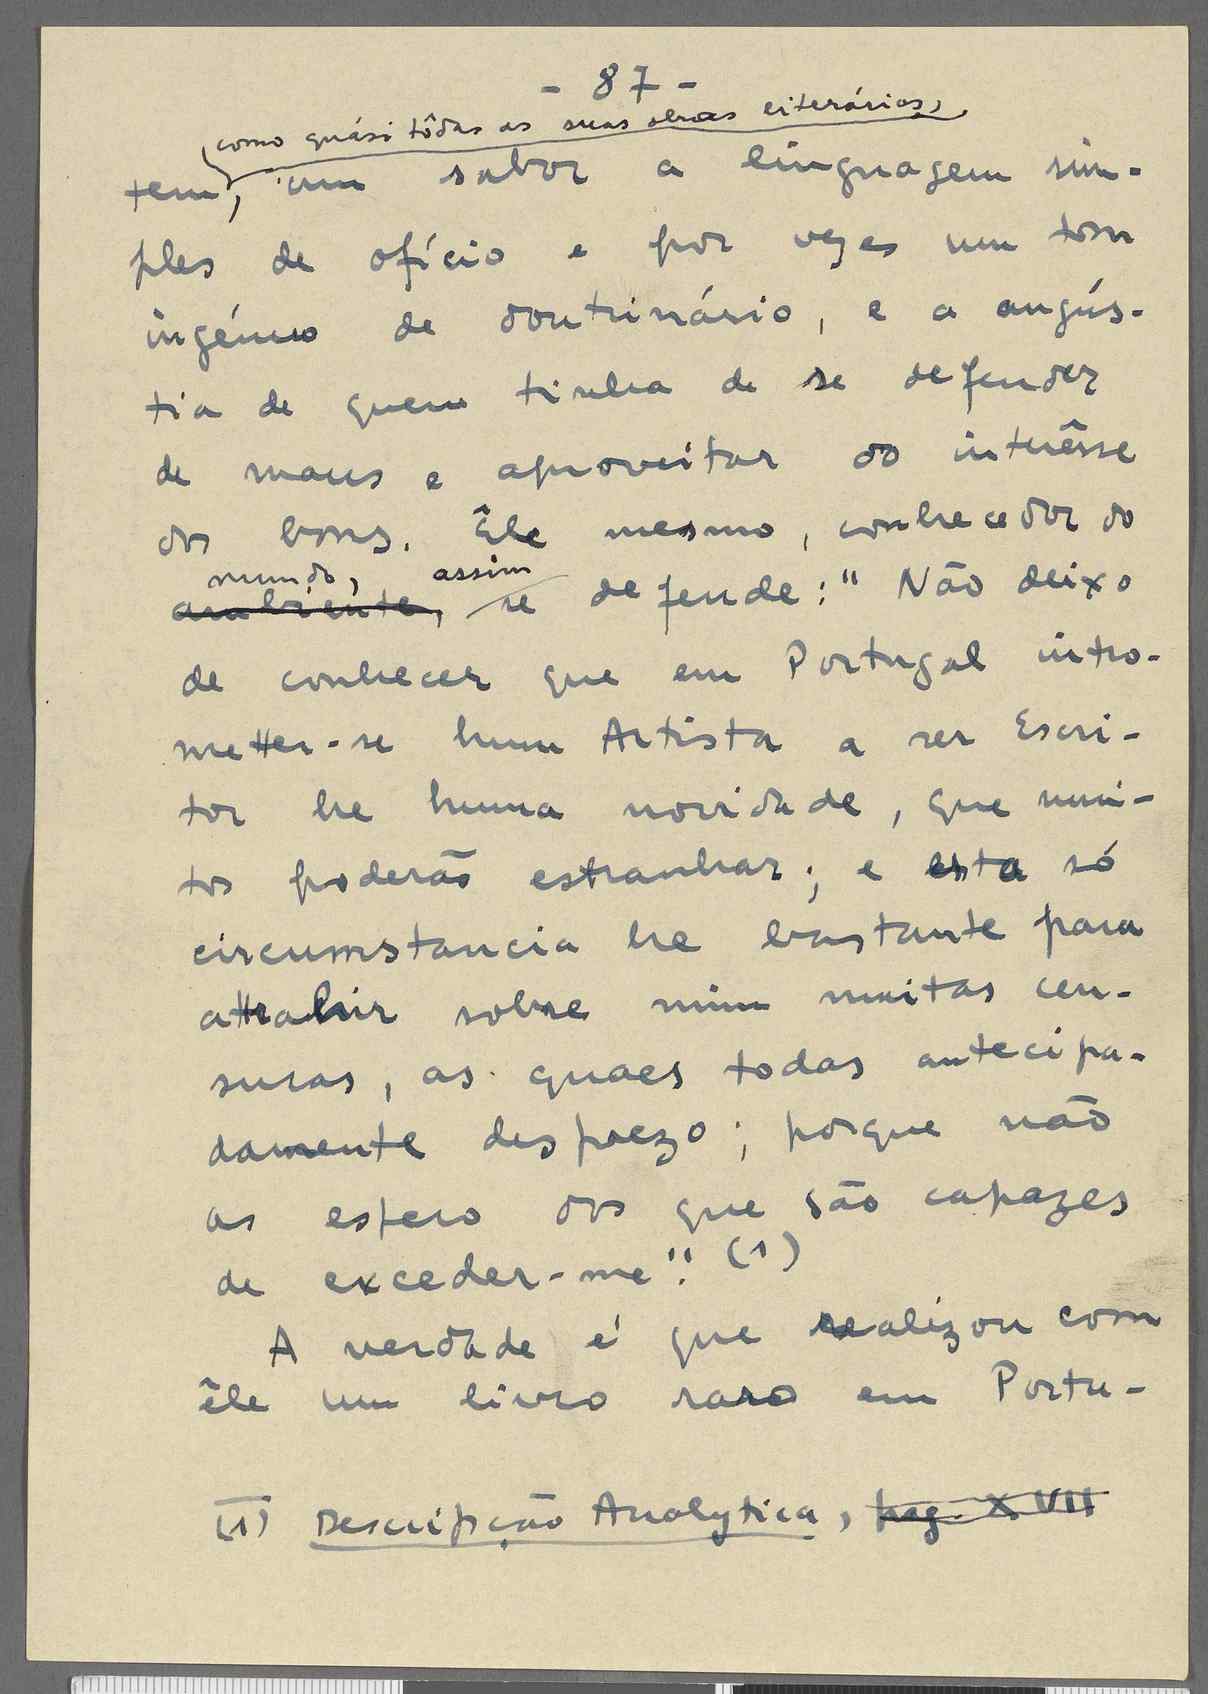 - 87 -
como quási tôdas as suas obras literárias,
tem, um sabor a linguagem sim-
ples de ofício e por vezes um tom
ingénuo de doutrinário, e a angús-
tia de quem tinha de se defender
de maus e aproveitar do interêsse
dos bons. Êle mesmo, conhecedor do
mundo, assim
ambiente, se defende: " Não deixo
de conhecer que em Portugal intro-
metter-se hum Artista a ser Escri-
tor he huma novidade, que mui-
tos poderão estranhar; e esta só
circumstancia he bastante para
attrahir sobre mim muitas cen-
suras, as quaes todas antecipa-
damente desprezo; porque não
as espero dos que são capazes
de exceder-me". (1)
A verdade é que realizou com
êle um livro raro em Portu-
(1) Descripção Analytica, pag. XVII